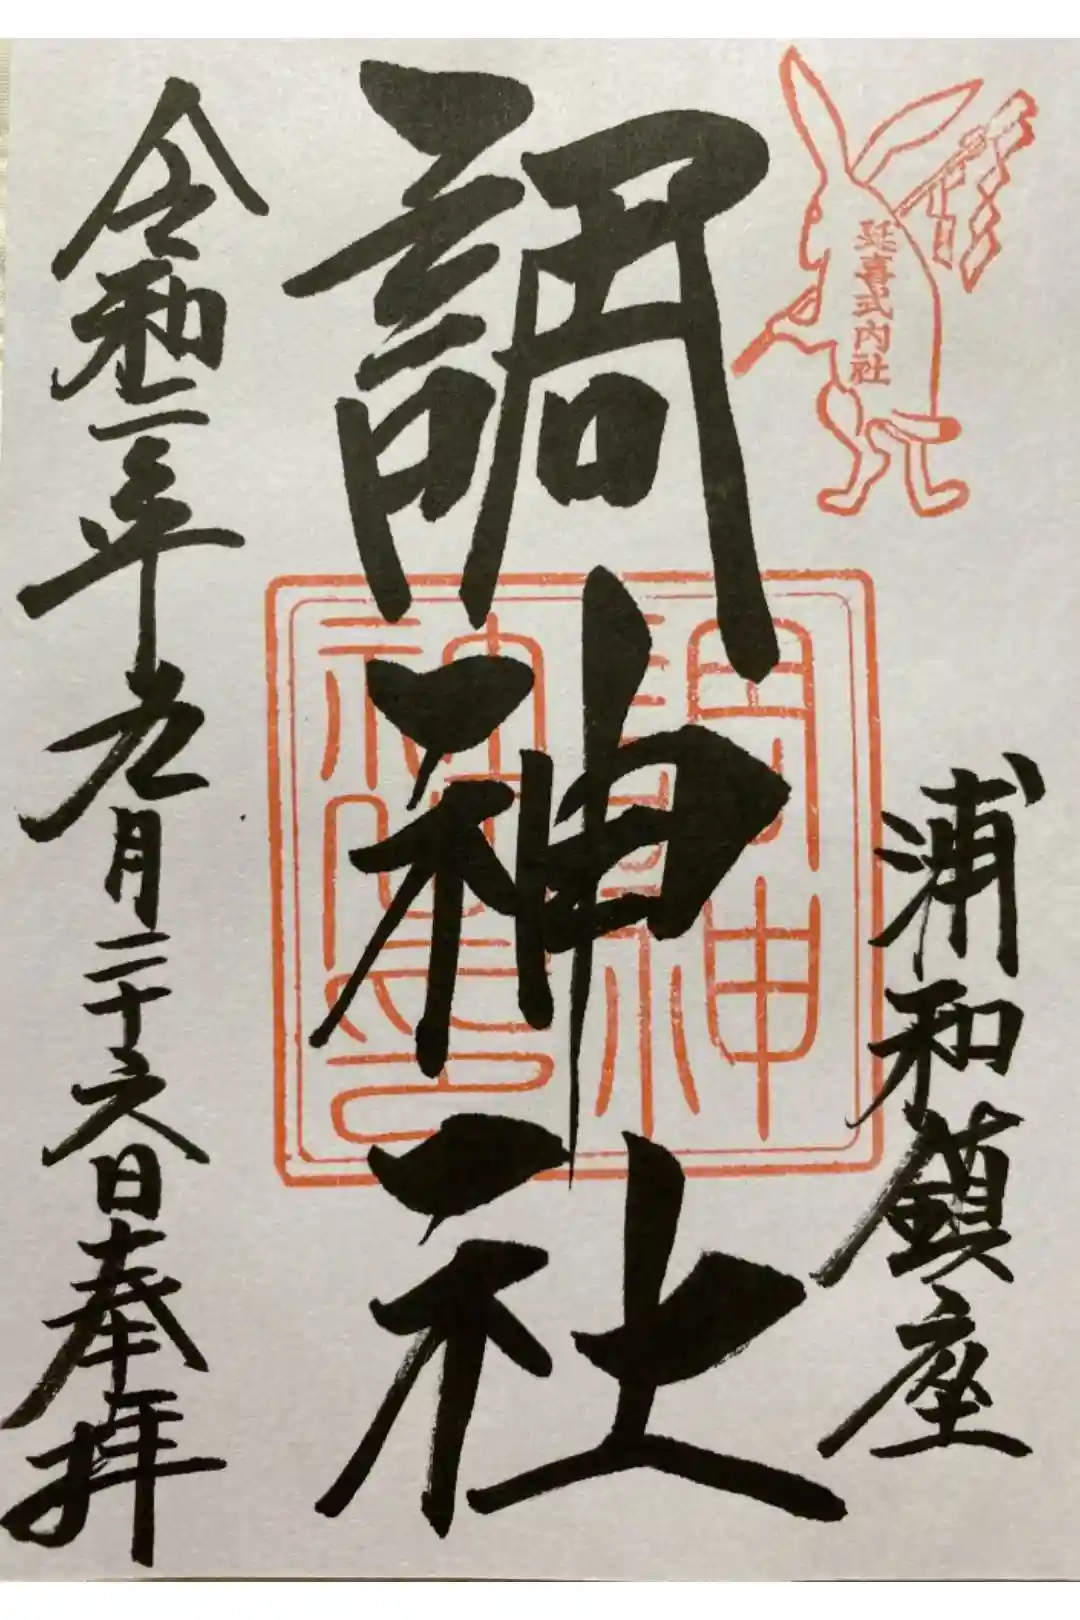 延喜式内社
浦和鎮座
調神社
調神
社之印
令和二年九月二十六日奉拝